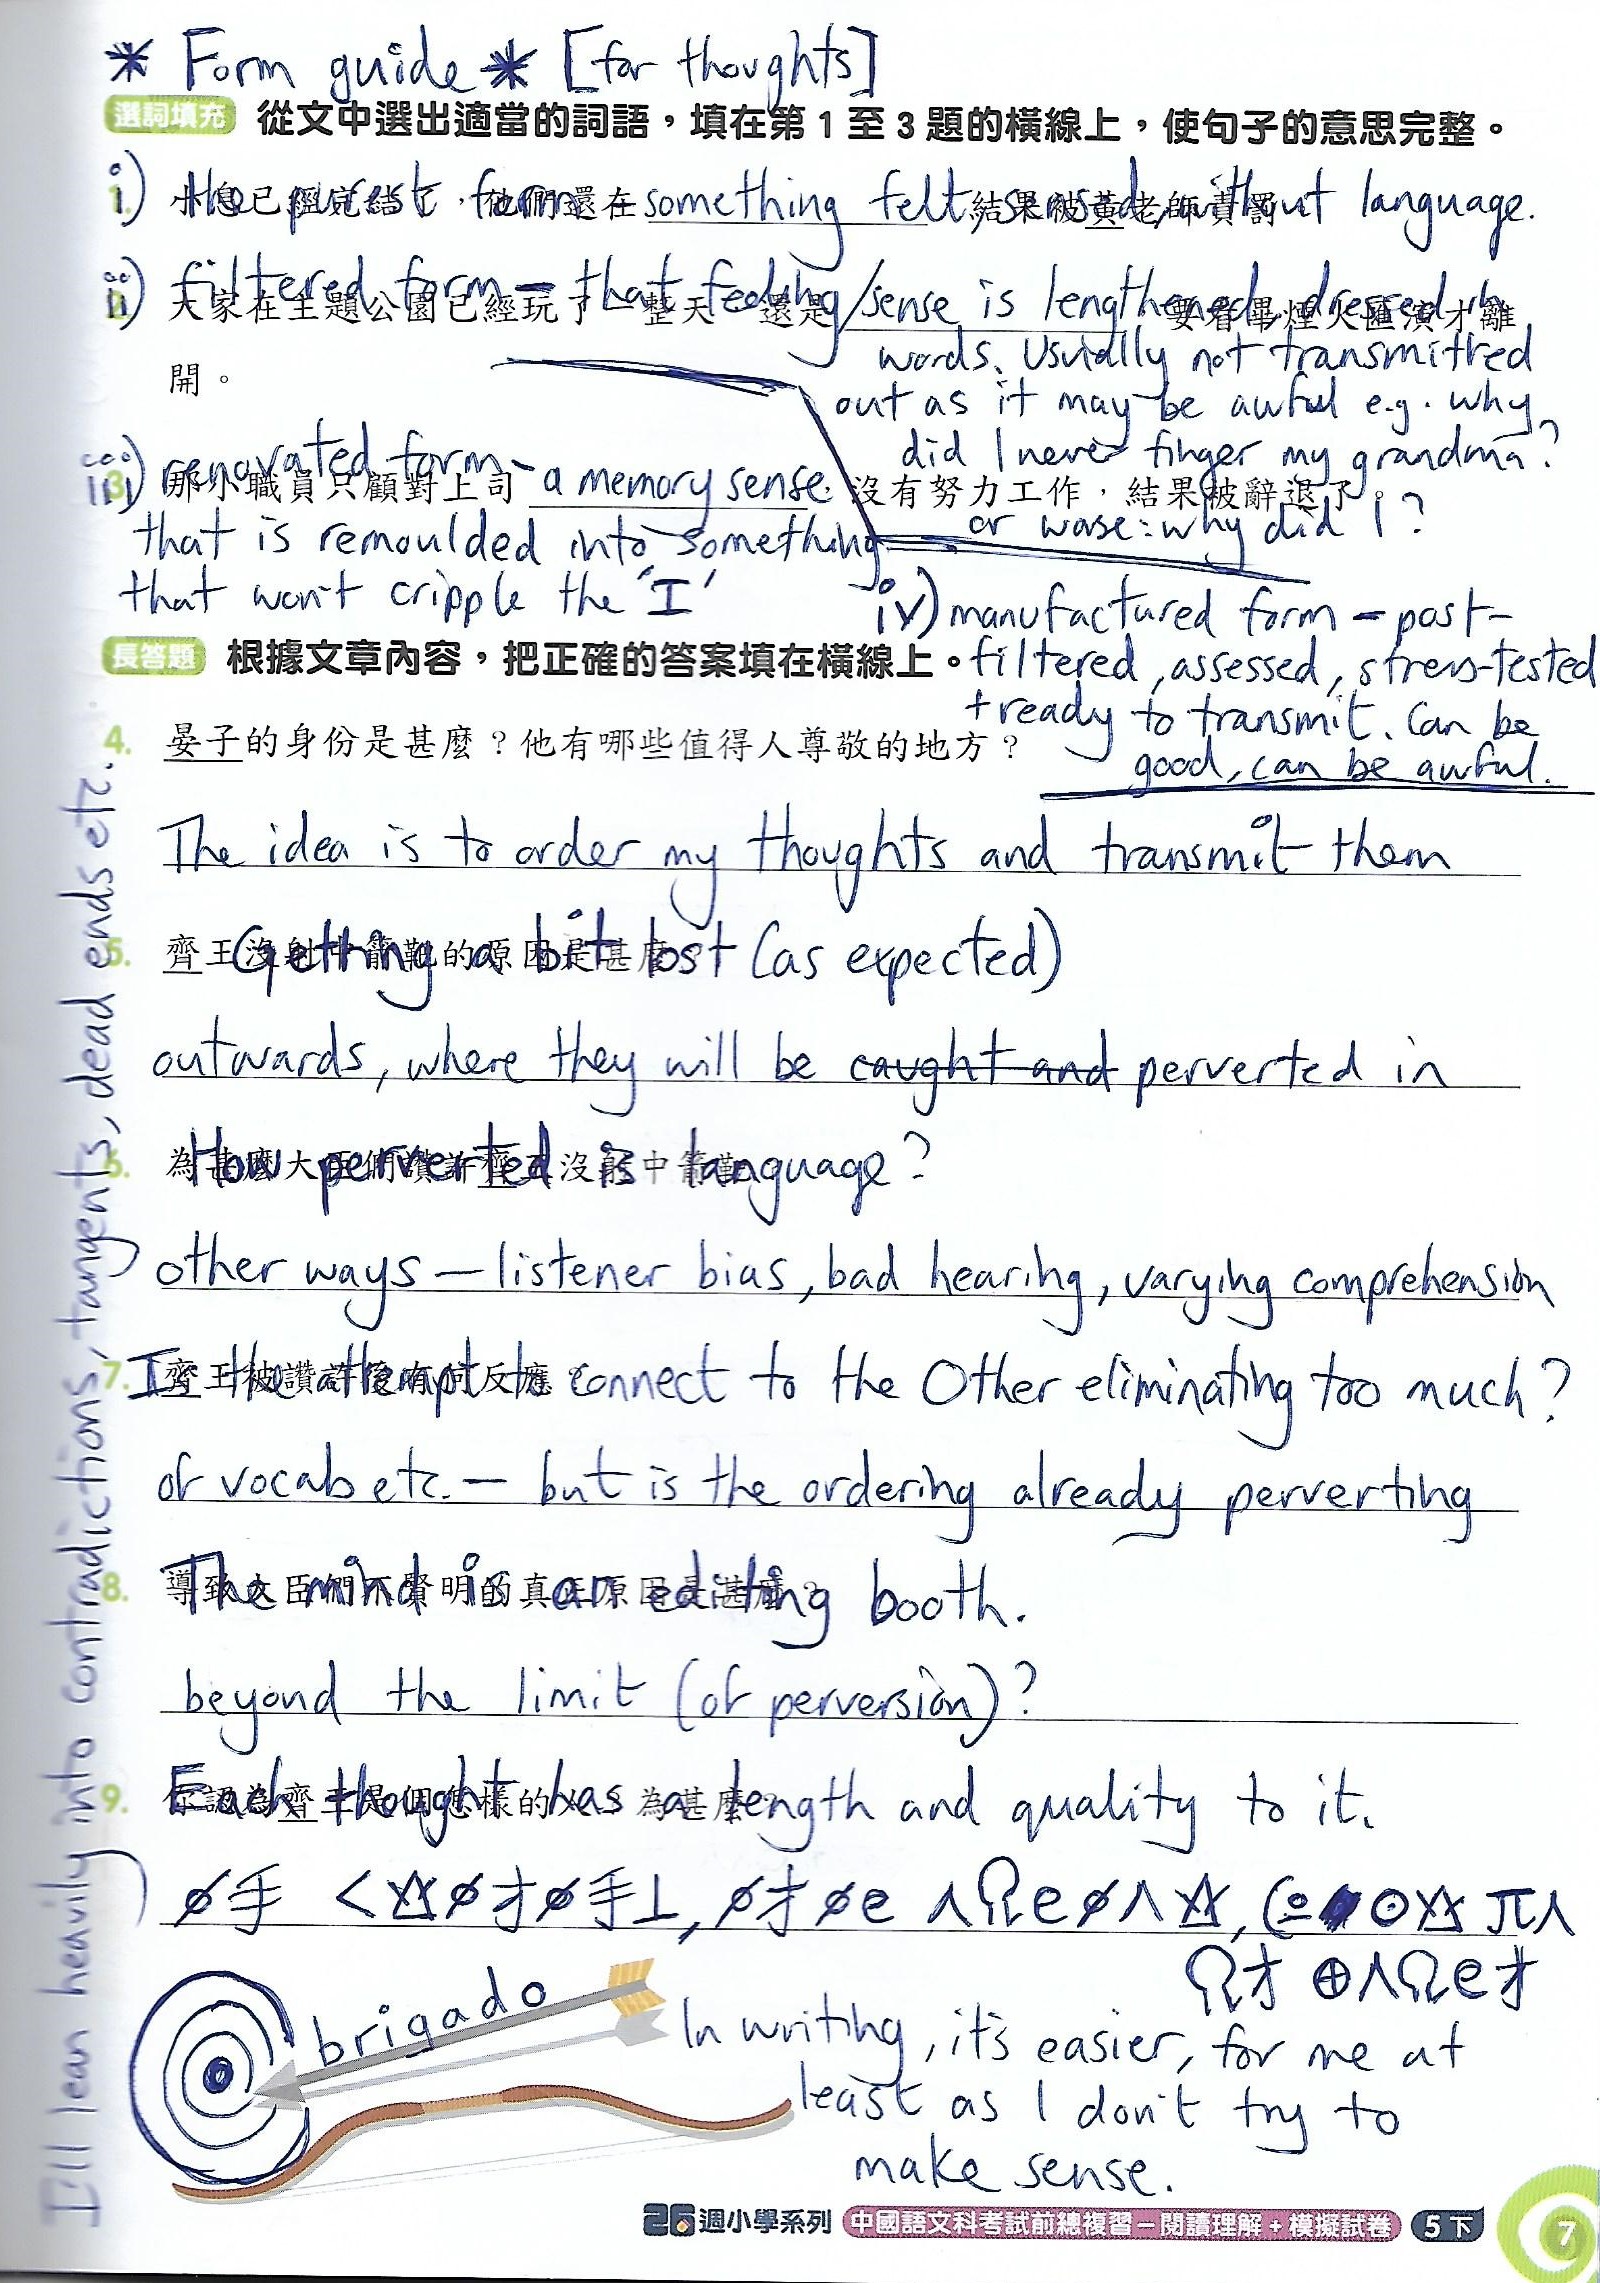 * Form guide * [for thoughts]
選詞填充 從文中選出適當的詞語，填在第 1 至 3 題的橫線上，使句子的意思完整。
i) the purest form - something felt, sensed, without language.
1. 小息已經完結了，他們還在 結果被黃老師責罰
ii) filtered form - that feeling/sense is lengthened, dressed in
2. 大家在主題公園已經玩了一整天 還是 要看畢煙火匯演才離
words. Usually not transmitted
開。
out as it may be awful e.g. why
did I never finger my grandma?
iii) renovated form - a memory sense
3. 那小職員只顧對上司 沒有努力工作，結果被辭退了。
or worse: why did I?
that is remoulded into something
that won't cripple the 'I'
iv) manufactured form - post-
長答題 根據文章內容，把正確的答案填在橫線上。
filtered, assessed, stress-tested
+ ready to transmit. Can be
good, can be awful.
4. 晏子的身份是甚麼？他有哪些值得人尊敬的地方？
The idea is to order my thoughts and transmit them
Getting a bit lost (as expected)
5. 齊王沒射中箭靶的原因是甚麼？
outwards, where they will be caught and perverted in
How perverted is language?
6. 為甚麼大臣們讚許齊王沒射中箭靶
other ways — listener bias, bad hearing, varying comprehension
Is the attempt to connect to the Other eliminating too much?
7. 齊王被讚許後有何反應？
of vocab etc. — but is the ordering already perverting
The mind is an editing booth.
8. 導致大臣們不賢明的真正原因是甚麼？
beyond the limit (of perversion)?
Each thought has a length and quality to it.
9. 你認為齊王是個怎樣的人？為甚麼？
brigado
In writing, it's easier, for me at
least as I don't try to
make sense.
I'll lean heavily into contradictions, tangents, dead ends etc.
26週小學系列 中國語文科考試前總複習－閱讀理解＋模擬試卷 5下 7